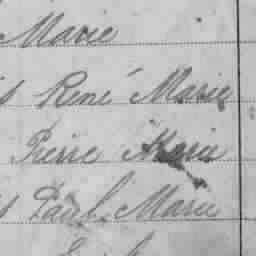 Marie
s René Marie
Pierre Marie
s Paul Marie